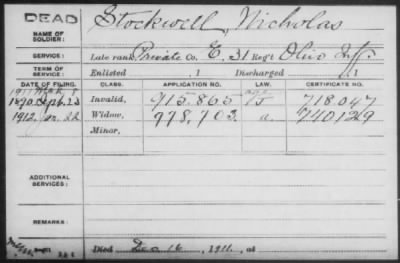 DEAD
NAME OF SOLDIER: Stockwell, Nicholas
SERVICE: Late rank Private Co. E, 31 Reg't Ohio Inf.
TERM OF SERVICE: Enlisted , 1 Discharged , 1
DATE OF FILING. CLASS. APPLICATION NO. LAW. CERTIFICATE NO.
1890 Sept. 23 Invalid, 915.865 718.047
1912, Jan. 22 Widow, 978,703 a. 740129
Minor,
ADDITIONAL SERVICES:
REMARKS:
Died Dec 16, 1911, at